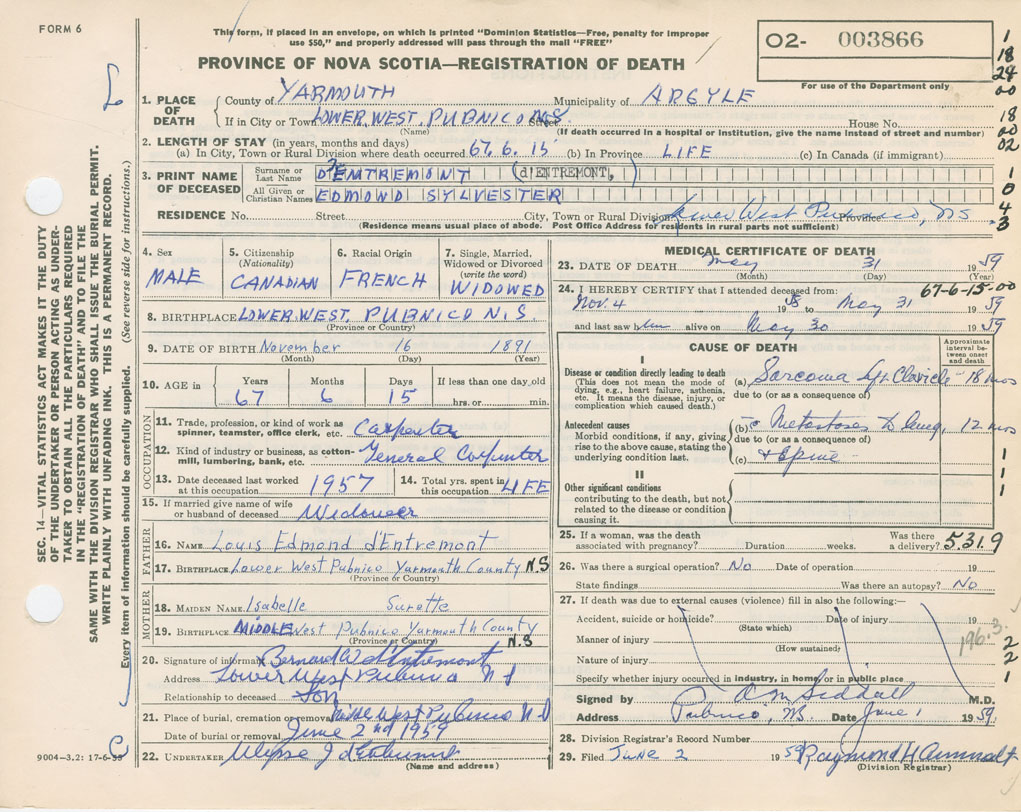 FORM 6
This form, if placed in an envelope, on which is printed "Dominion Statistics—Free, penalty for improper
use $50," and properly addressed will pass through the mail "FREE"
PROVINCE OF NOVA SCOTIA—REGISTRATION OF DEATH
02- 003866
For use of the Department only
1
18
24
00
18
00
02
1
0
4
3
SEC. 14—VITAL STATISTICS ACT MAKES IT THE DUTY
OF THE UNDERTAKER OR PERSON ACTING AS UNDER-
TAKER TO OBTAIN ALL THE PARTICULARS REQUIRED
IN THE "REGISTRATION OF DEATH" AND TO FILE THE
SAME WITH THE DIVISION REGISTRAR WHO SHALL ISSUE THE BURIAL PERMIT.
WRITE PLAINLY WITH UNFADING INK. THIS IS A PERMANENT RECORD.
Every item of information should be carefully supplied. (See reverse side for instructions.)
1. PLACE OF DEATH
County of YARMOUTH Municipality of ARGYLE
If in City or Town LOWER WEST PUBNICO N.S. Street House No.
(Name) (If death occurred in a hospital or institution, give the name instead of street and number)
2. LENGTH OF STAY (in years, months and days)
(a) In City, Town or Rural Division where death occurred 67. 6. 15 (b) In Province LIFE (c) In Canada (if immigrant)
3. PRINT NAME OF DECEASED
Surname or Last Name D'ENTREMONT (d'ENTREMONT,)
All Given or Christian Names EDMOND SYLVESTER
RESIDENCE No. Street City, Town or Rural Division Lower West Pubnico, NS Province
(Residence means usual place of abode. Post Office Address for residents in rural parts not sufficient)
4. Sex
MALE
5. Citizenship
(Nationality)
CANADIAN
6. Racial Origin
FRENCH
7. Single, Married,
Widowed or Divorced
(write the word)
WIDOWED
8. BIRTHPLACE LOWER WEST. PUBNICO N.S.
(Province or Country)
9. DATE OF BIRTH November 16 1891
(Month) (Day) (Year)
10. AGE in
Years Months Days If less than one day old
67 6 15 hrs. or min.
OCCUPATION
11. Trade, profession, or kind of work as
spinner, teamster, office clerk, etc. Carpenter
12. Kind of industry or business, as cotton-
mill, lumbering, bank, etc. General Carpenter
13. Date deceased last worked
at this occupation 1957
14. Total yrs. spent in
this occupation LIFE
15. If married give name of wife
or husband of deceased Widower
FATHER
16. NAME Louis Edmond d'Entremont
17. BIRTHPLACE Lower West Pubnico Yarmouth County N.S
(Province or Country)
MOTHER
18. MAIDEN NAME Isabelle Surette
19. BIRTHPLACE MIDDLE West Pubnico Yarmouth County
(Province or Country) N.S
20. Signature of informant Bernard W d'Entremont
Address Lower West Pubnico N S
Relationship to deceased Son
21. Place of burial, cremation or removal Middle West Pubnico N S
Date of burial or removal June 2nd, 1959
22. UNDERTAKER Ulysse J d'Entremont
(Name and address)
9004—3.2: 17-6-55
MEDICAL CERTIFICATE OF DEATH
23. DATE OF DEATH May 31 1959
(Month) (Day) (Year)
24. I HEREBY CERTIFY that I attended deceased from: 67-6-15-00
Nov. 4 1958 to May 31 1959
and last saw him alive on May 30 1959
CAUSE OF DEATH
Approximate
interval be-
tween onset
and death
I
Disease or condition directly leading to death
(This does not mean the mode of
dying, e.g., heart failure, asthenia,
etc. It means the disease, injury, or
complication which caused death.)
(a) Sarcoma Lft Clavicle 18 mos
due to (or as a consequence of)
Antecedent causes
Morbid conditions, if any, giving
rise to the above cause, stating the
underlying condition last.
(b) c Metastases to Lung, 12 mos
due to (or as a consequence of)
(c) + Spine
II
Other significant conditions
contributing to the death, but not
related to the disease or condition
causing it.
1
1
1
25. If a woman, was the death
associated with pregnancy? Duration weeks. Was there
a delivery? 5319
26. Was there a surgical operation? No Date of operation 19
State findings Was there an autopsy? No
27. If death was due to external causes (violence) fill in also the following:—
Accident, suicide or homicide? Date of injury 19
(State which)
196.3.
Manner of injury
(How sustained)
Nature of injury
2
2
1
Specify whether injury occurred in industry, in home, or in public place
Signed by A M Siddall M.D.
Address Pubnico, NS. Date June 1 1959.
28. Division Registrar's Record Number
29. Filed June 2 1959 Raymond H Amirault
(Division Registrar)